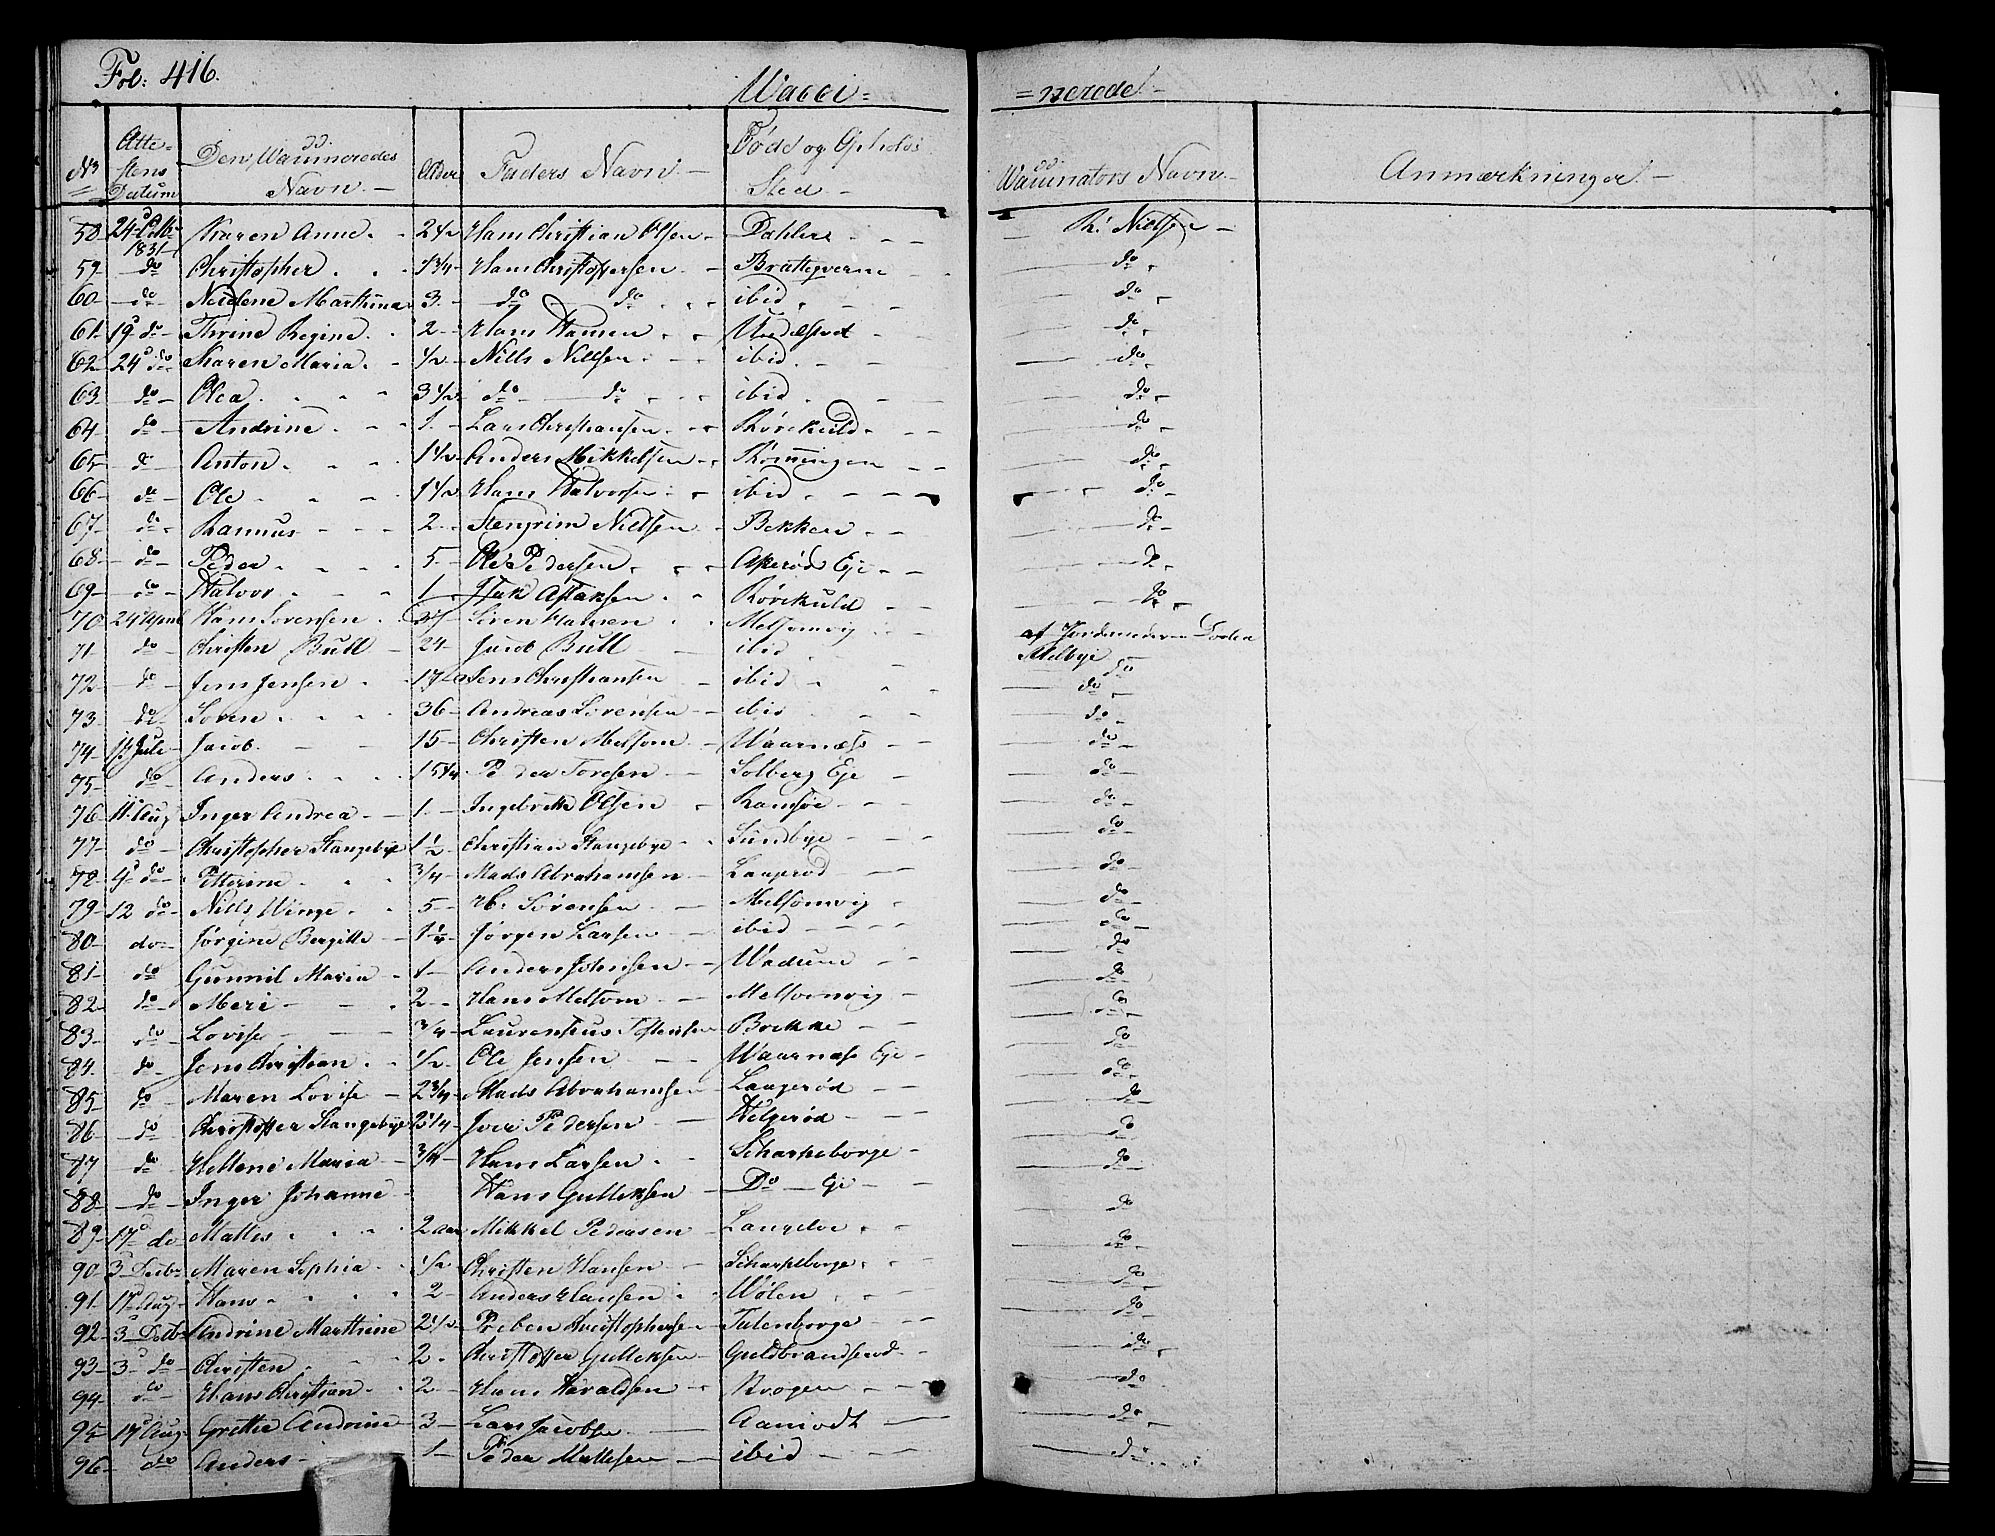 Fol: 416.
Wacci=
=nerede.
No
Attestens Datum
Den Waccineredes Navn.
Alder
Faders Navn.
Føde og Opholds Sted.
Waccinators Navn.
Anmærkninger.
58 24d 1831 Karen Anne 2 1/2 Hans Christian Olsen Dahler R: Nielsen
59 do Christopher 1 3/4 Hans Christophersen Bratteqverne do
60 do Nicolene Marthine 3 do do ibid do
61 19d do Thrine Regine 2 Hans Hansen Undelstad do
62 24d do Karen Maria 1/2 Niels Nielsen ibid do
63 do Olea 3 1/2 do do ibid do
64 do Andrine 1 Lars Christiansen Rørekuld do
65 do Anton 1 1/2 Anders Mikkelsen Rømmingen do
66 do Ole 1 1/2 Hans Halvorsen ibid do
67 do Rasmus 2 Stengrim Nielsen Bekken do
68 do Peder 5 Ole Pedersen Akerøds Eje do
69 do Halvor 1 Isak Aslaksen Rørekuld do
70 24 April Hans Sørensen 37 Søren Hansen Melsomvig af Jordemoderen Dorlea Melbye
71 do Christen Bull 24 Jacob Bull ibid do
72 do Jens Jensen 17 Jens Christiansen ibid do
73 do Søren 36 Andreas Sørensen ibid do
74 1 Juli Jacob 15 Christen Melsom Waarnæss do
75 do Anders 15 1/4 Peder Toresen Solberg Eje do
76 11 Aug Inger Andrea 1 Ingebrett Olsen Ramsøe do
77 do Christopher Stangebye 1 1/2 Christian Stangebye Sundbye do
78 4d do Petterine 3/4 Mads Abrahamsen Laagerød do
79 12 do Niels Winge 5 H. Sørensen Melsomvig do
80 do Jørgine Bergitte 1 1/4 Jørgen Larsen ibid do
81 do Gunnil Maria 1 Anders Johnsen Wadum do
82 do Meri 2 Hans Melsom Melsomvig do
83 do Lovise 3/4 Laurentius Brekke do
84 do Jens Christian 1/2 Ole Jensen Waarnæss Eje do
85 do Maren Lovise 2 3/4 Mads Abrahamsen Laagerød do
86 do Christoffer Stangebye 2 1/4 Iver Pedersen Helgerød do
87 do Hellene Maria 3/4 Hans Larsen Scharpeborge do
88 do Inger Johanne Hans Gulliksen Do Eje do
89 17d do Mattis 2 aar Mikkel Pedersen Langelöe do
90 3 Decb Maren Sophia 1/2 Christen Hansen Scharpeborge do
91 17 Aug Hans 2 Anders Hansen Wølen do
92 3d Decb Andrine Marthine 2 1/2 Preben Christophersen Tutenborge do
93 3d do Christen 2 Christoffer Gulliksen Guldbrandserød do
94 do Hans Christian 2 Hans Haraldsen Krogen do
95 17d Aug Grethe Andrine 3 Lars Jacobsen Aamodt do
96 do Anders 1 Peder Mattesen ibid do